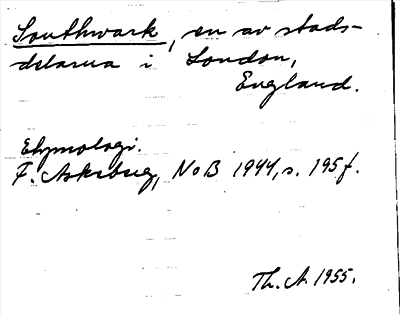 Southwark, en av stads-
delarna i London,
England.
Etymologi.
F. Askeberg, NoB 1944, s. 195 f.
Th. A. 1955.